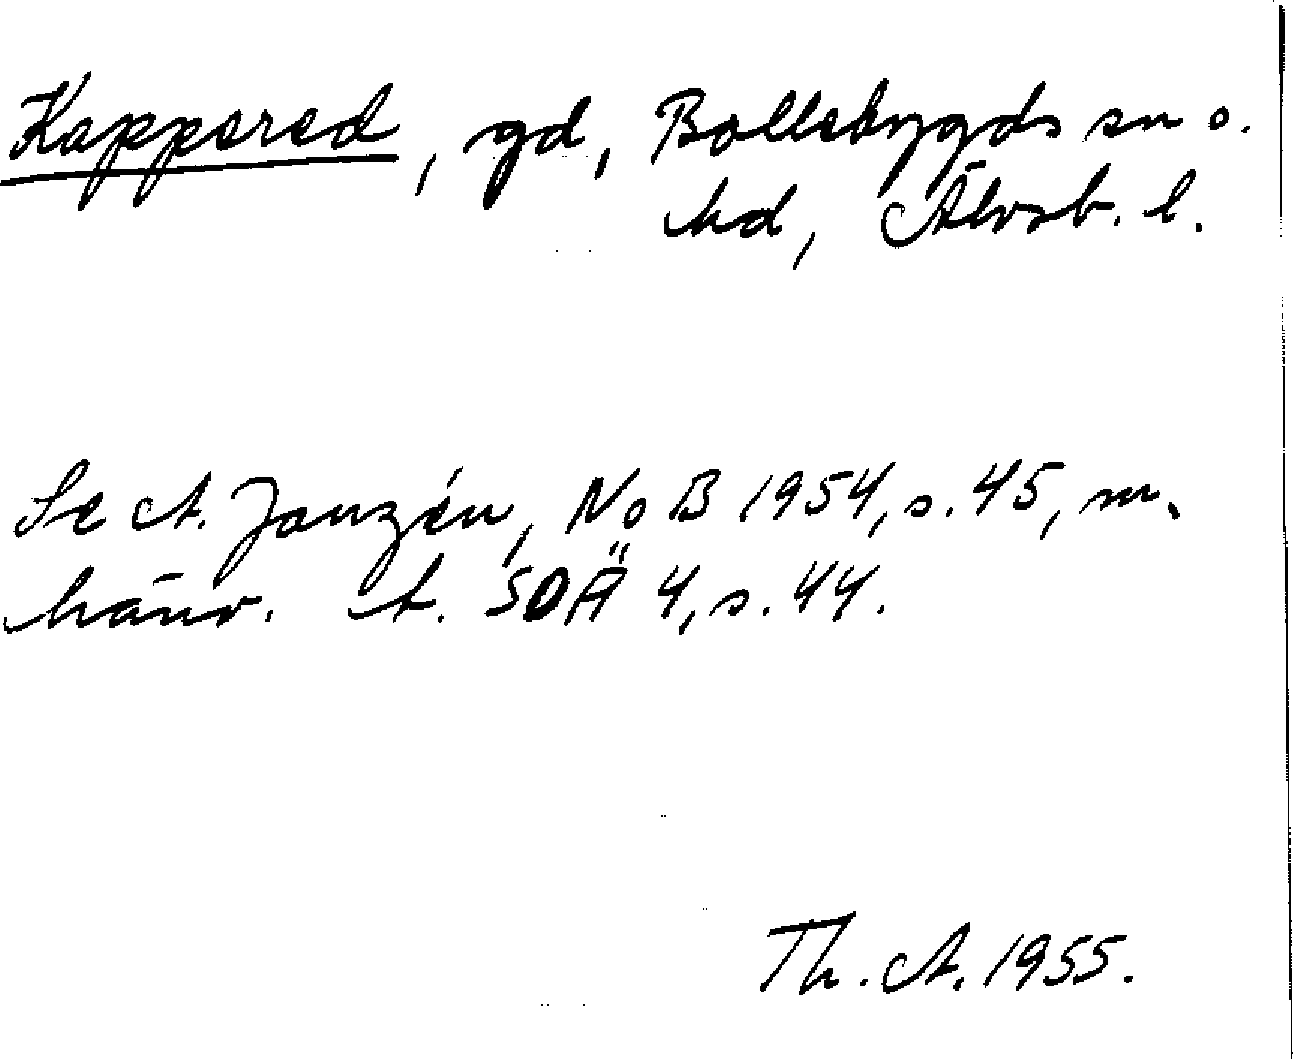 Kappered, gd, Bollebygds sn o.
hd, Älvsb. l.
Se A. Janzén, NoB 1954, s. 45, m.
hänv. t. SOÄ 4, s. 44.
Th. A. 1955.